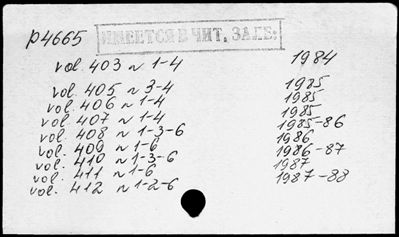 р4665
ИМЕЕТСЯ В ЧИТ. ЗАЛЕ:
vol. 403 N 1-4 1984
vol. 405 N 3-4 1985
vol. 406 N 1-4 1985
vol. 407 N 1-4 1985
vol. 408 N 1-3-6 1985-86
vol. 409 N 1-6 1986
vol. 410 N 1-3-6 1986-87
vol. 411 N 1-6 1987
vol. 412 N 1-2-6 1987-88